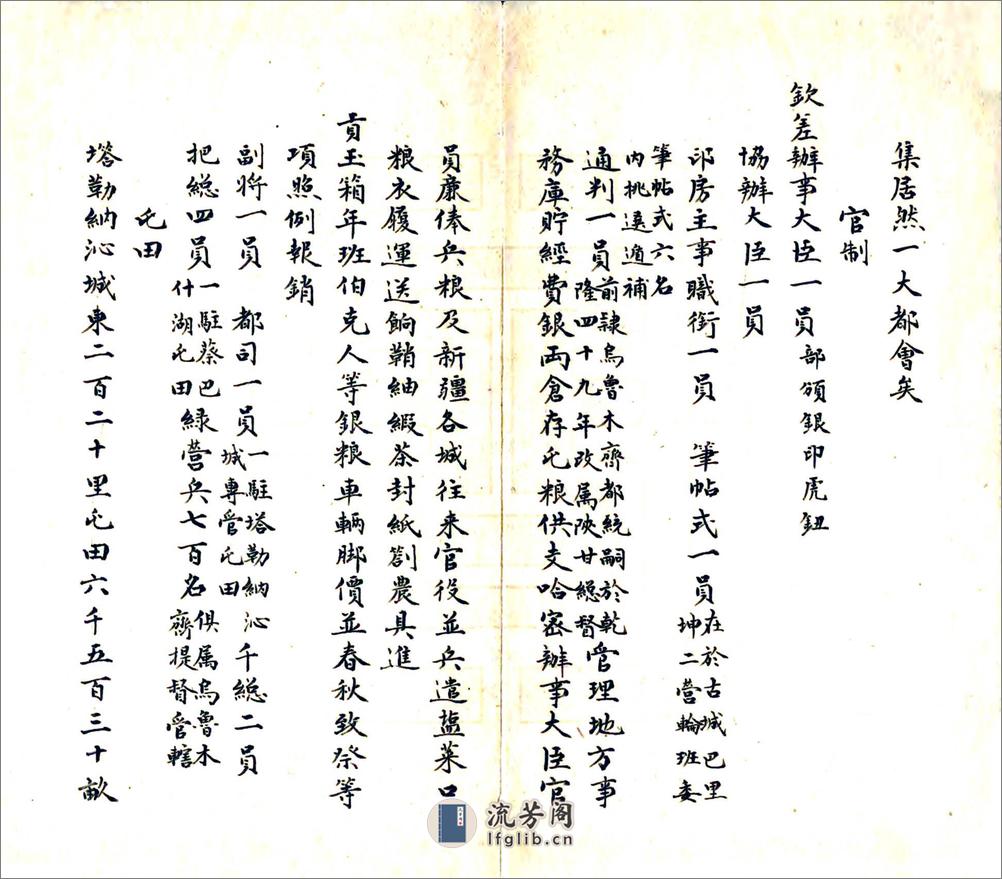 集居然一大都會矣
官制
欽差辦事大臣一員部頒銀印虎鈕
協辦大臣一員
印房主事職銜一員　筆帖式一員在於古城巴里坤二營輪班委
筆帖式六名內挑選適補
通判一員前隸烏魯木齊都統嗣於乾隆四十九年改属陝甘總督管理地方事
務庫貯經費銀兩倉存屯粮供支哈密辦事大臣官
員廉俸兵粮及新疆各城往来官役並兵遣盐菜口
粮衣履運送餉鞘紬緞茶封紙劄農具進
貢玉箱年班伯克人等銀粮車輛脚價並春秋致祭等
項照例報銷
副将一員　都司一員一駐塔勒納沁城專管屯田千総二員
把総四員一駐蔡巴什湖屯田緑营兵七百名俱属烏魯木齊提督管轄
屯田
塔勒納沁城東二百二十里屯田六千五百三十畝
流芳阁
lfglib.cn